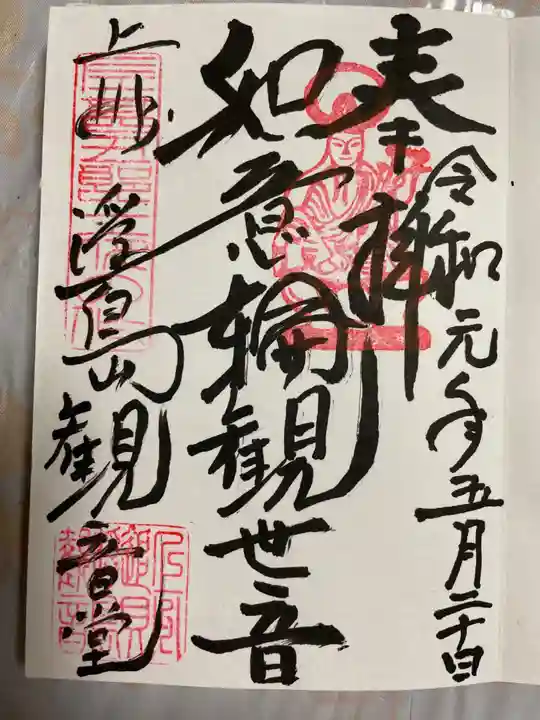 奉拝
令和元年五月二十日
如意輪観世音
上州 浮島観音堂